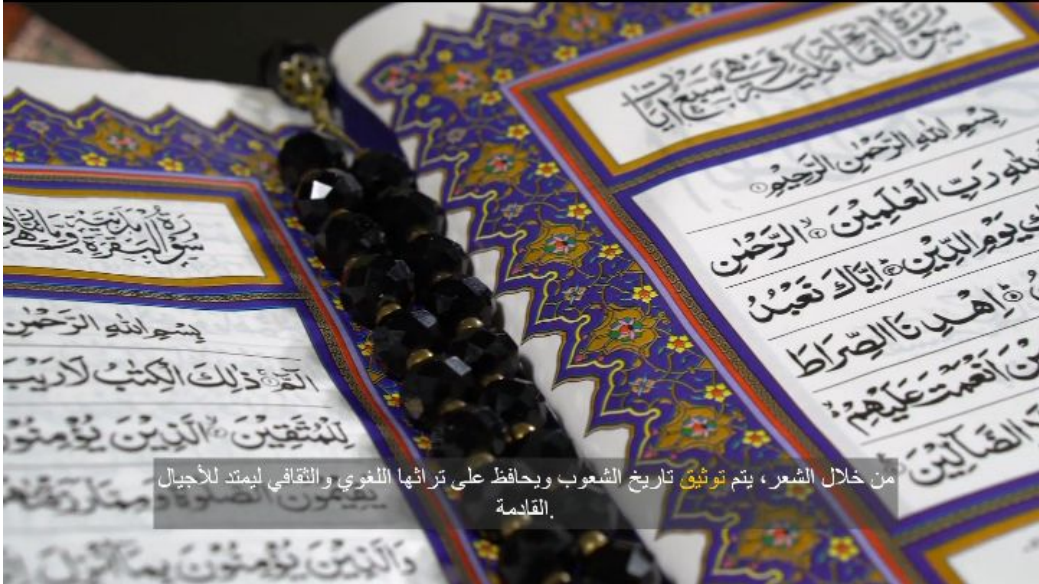 سورة الفاتحة مكية وهي سبع آيات
بِسْمِ اللهِ الرَّحْمٰنِ الرَّحِيْمِ ۝۱
رَبِّ الْعٰلَمِيْنَ ۝۲ الرَّحْمٰنِ
يَوْمِ الدِّيْنِ ۝۴ اِيَّاكَ نَعْبُدُ
۝۵ اِهْدِنَا الصِّرَاطَ
اَنْعَمْتَ عَلَيْهِمْ
الضَّآلِّيْنَ
سورة البقرة مدنية
بِسْمِ اللهِ الرَّحْمٰنِ
الٓمّٓ ۝۱ ذٰلِكَ الْكِتٰبُ لَا رَيْبَ
لِلْمُتَّقِيْنَ ۝۲ الَّذِيْنَ يُؤْمِنُوْنَ
وَالَّذِيْنَ يُؤْمِنُوْنَ بِمَآ اُنْزِلَ
من خلال الشعر، يتم توثيق تاريخ الشعوب ويحافظ على تراثها اللغوي والثقافي ليمتد للأجيال
القادمة.